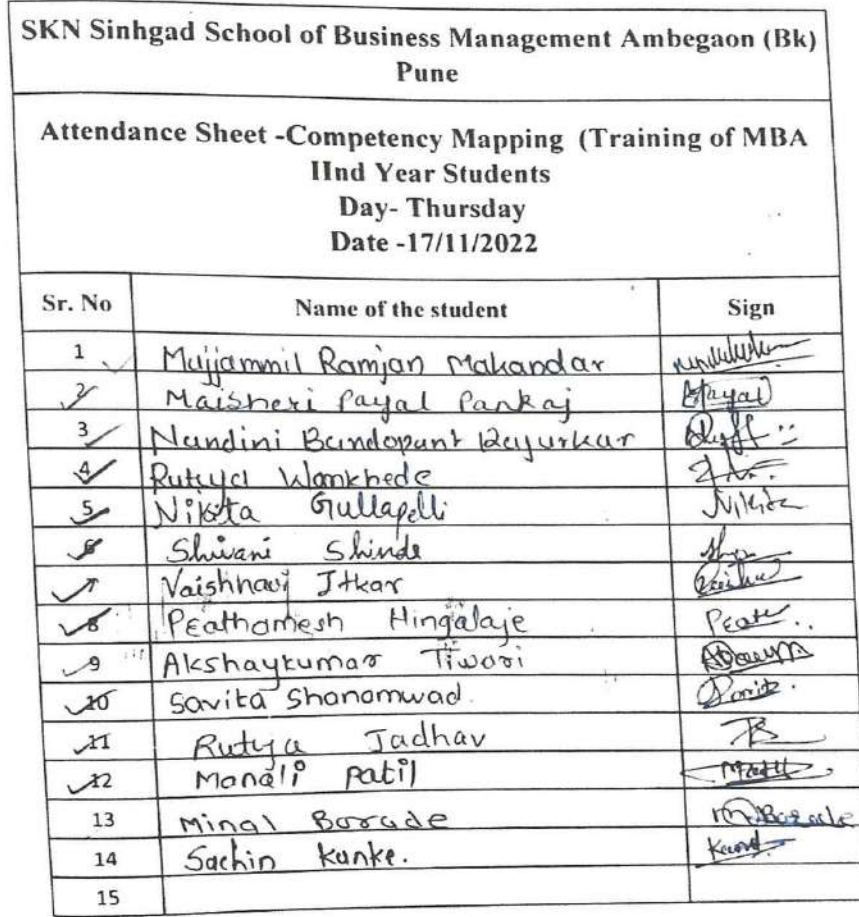 SKN Sinhgad School of Business Management Ambegaon (Bk)
Pune
Attendance Sheet -Competency Mapping (Training of MBA
IInd Year Students
Day- Thursday
Date -17/11/2022
Sr. No Name of the student Sign
1 Mujjammil Ramjan Makandar
2 Maisheri Payal Pankaj Payal
3 Nandini Bandopant
4 Rutuja Wankhede
5 Nikita Gullapelli Nikita
6 Shivani Shinde
7 Vaishnavi Itkar
8 Prathamesh Hingalaje
9 Akshaykumar Tiwari
10 Savita Shanamwad
11 Rutuja Jadhav
12 Manali Patil
13 Minal Borade M Borade
14 Sachin Kunke.
15